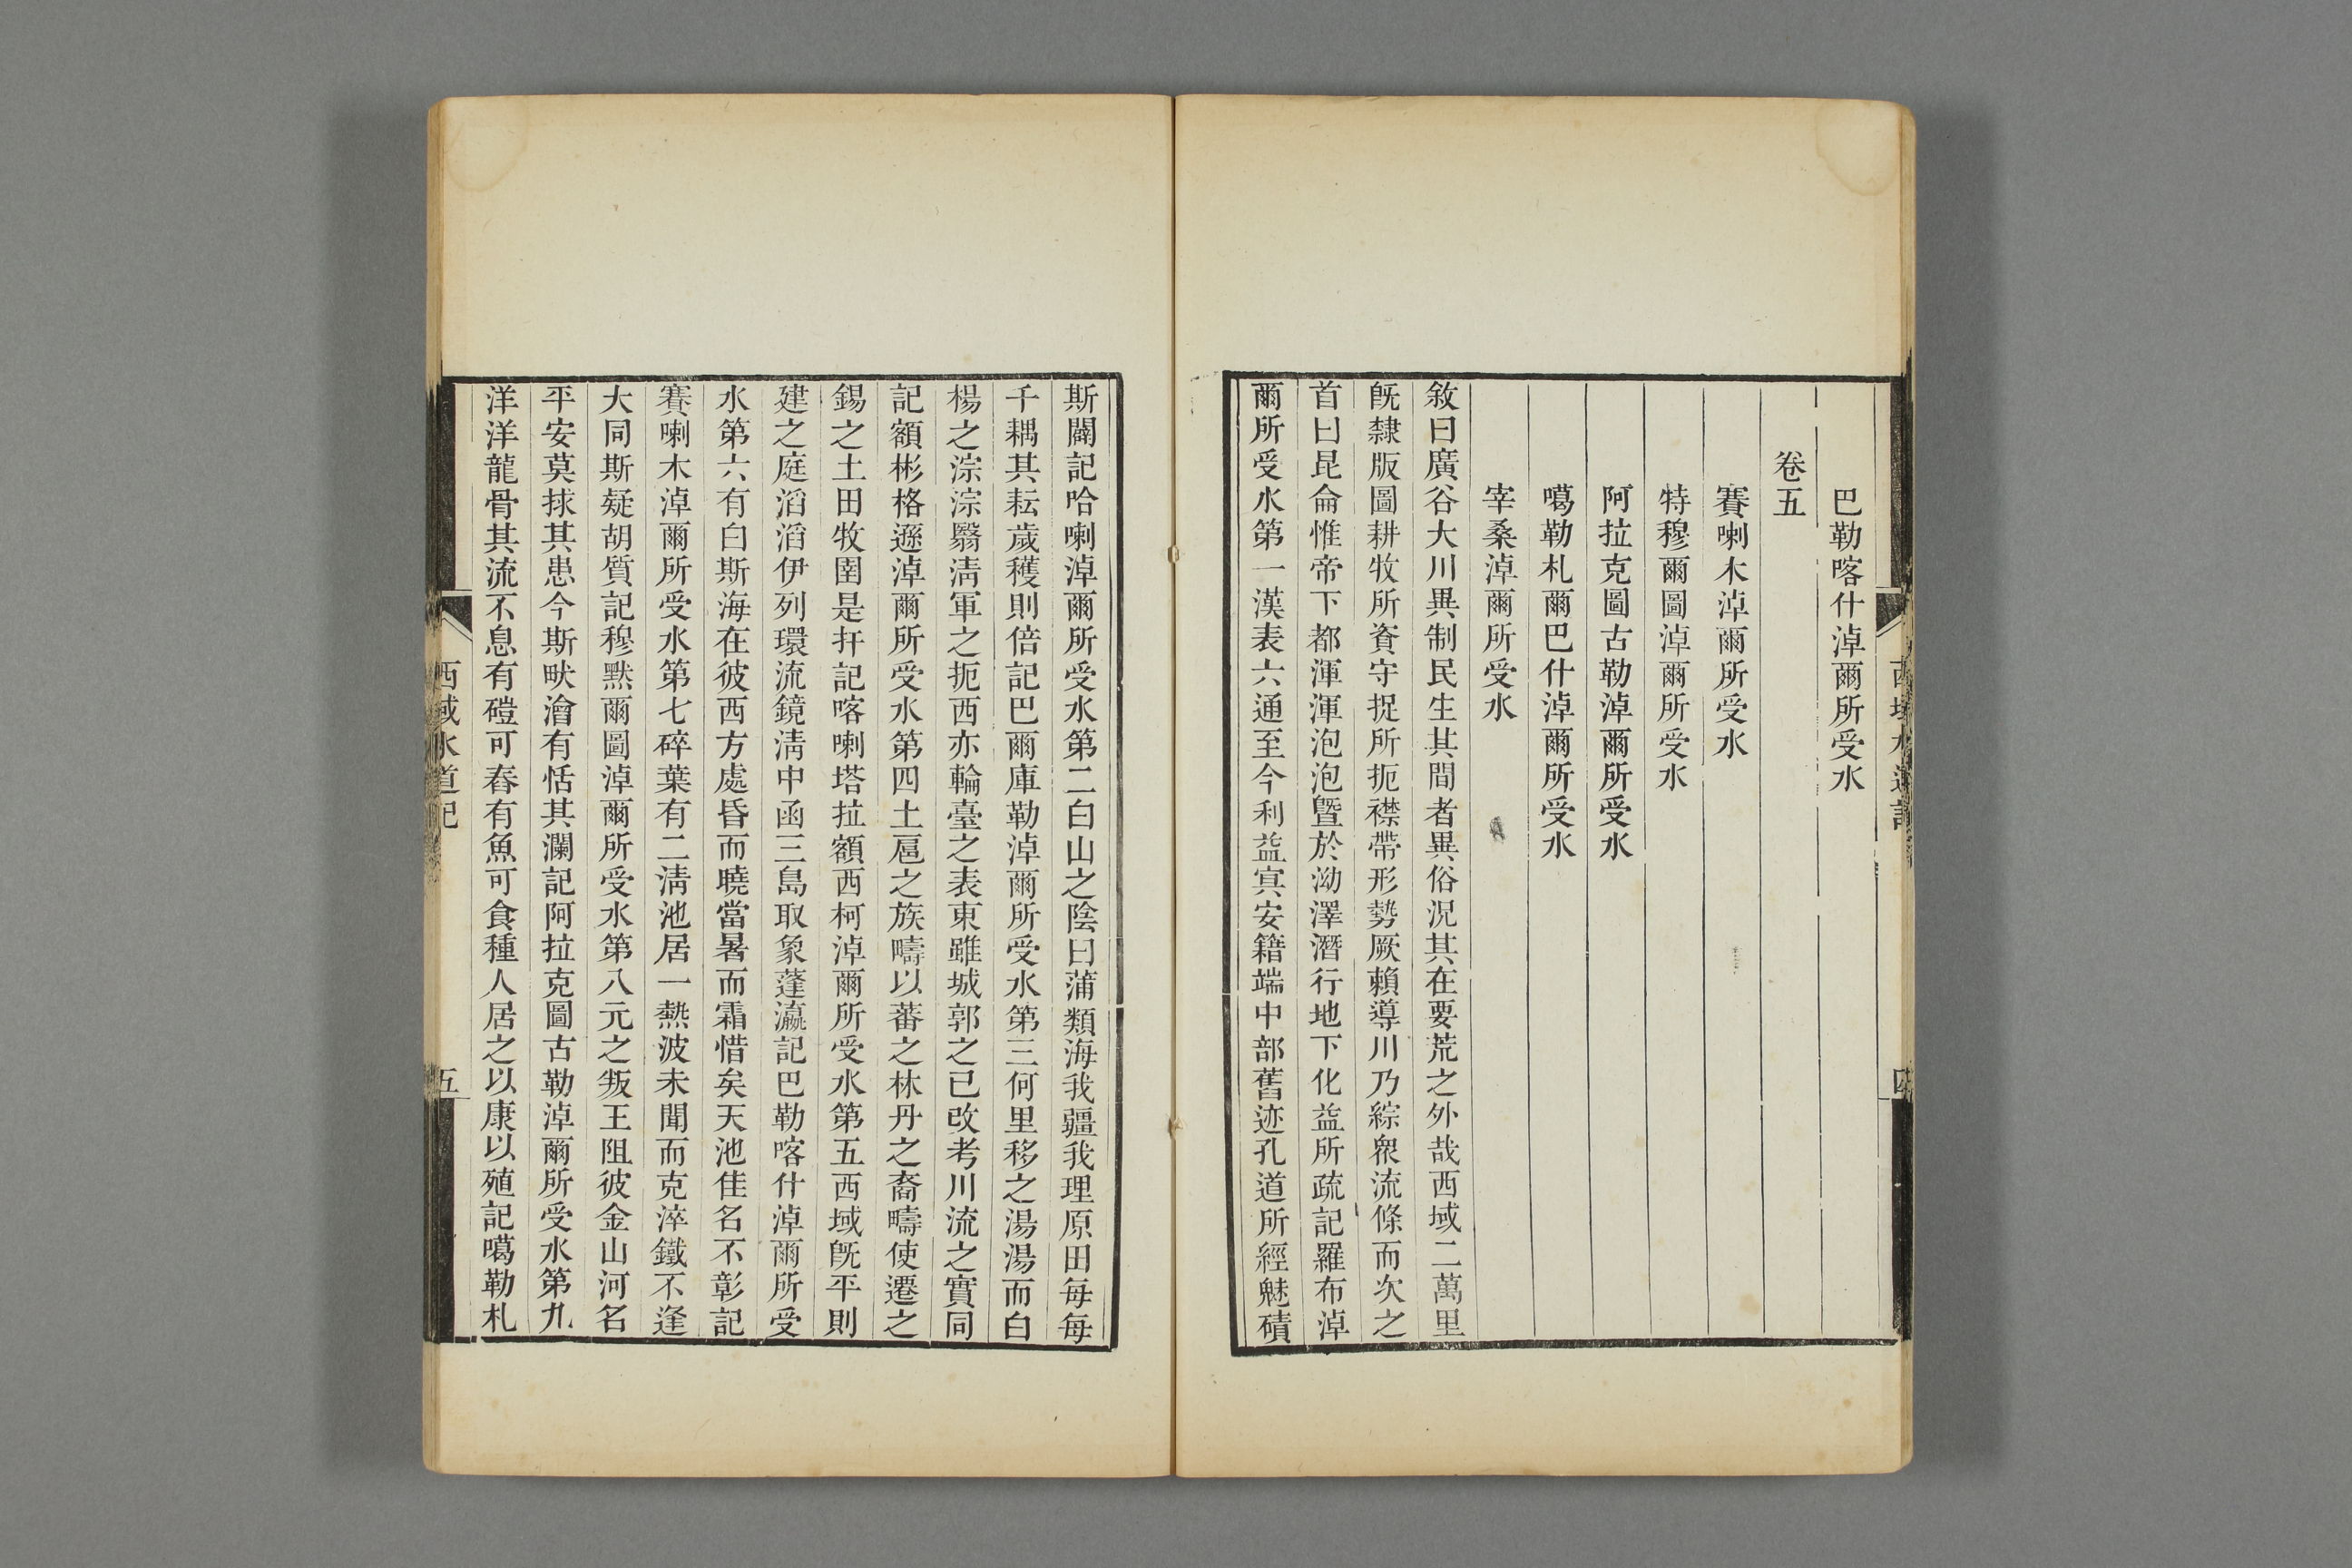 巴勒喀什淖爾所受水
卷五
賽喇木淖爾所受水
特穆爾圖淖爾所受水
阿拉克圖古勒淖爾所受水
噶勒札爾巴什淖爾所受水
宰桑淖爾所受水
敘曰廣谷大川異制民生其間者異俗況其在要荒之外哉西域二萬里
旣隸版圖耕牧所資守捉所扼襟帶形勢厥賴導川乃綜衆流條而次之
首曰昆侖惟帝下都渾渾泡泡曁於泑澤潛行地下化益所疏記羅布淖
爾所受水第一漢表六通至今利益寘安籍端中部舊迹孔道所經魋磧
斯闢記哈喇淖爾所受水第二白山之陰曰蒲類海我疆我理原田每每
千耦其耘歲穫則倍記巴爾庫勒淖爾所受水第三何里移之湯湯而白
楊之淙淙翳淸軍之扼西亦輪臺之表東雖城郭之已改考川流之實同
記額彬格遜淖爾所受水第四土扈之族疇以蕃之林丹之裔疇使遷之
錫之土田牧圉是扞記喀喇塔拉額西柯淖爾所受水第五西域旣平則
建之庭滔滔伊列環流鏡淸中函三島取象蓬瀛記巴勒喀什淖爾所受
水第六有白斯海在彼西方處昏而曉當暑而霜惜矣天池佳名不彰記
賽喇木淖爾所受水第七碎葉有二淸池居一熱波未聞而克淬鐵不逢
大同斯疑胡質記穆默爾圖淖爾所受水第八元之叛王阻彼金山河名
平安莫捄其患今斯畎澮有恬其瀾記阿拉克圖古勒淖爾所受水第九
洋洋龍骨其流不息有磑可舂有魚可食種人居之以康以殖記噶勒札
西域水道記
五